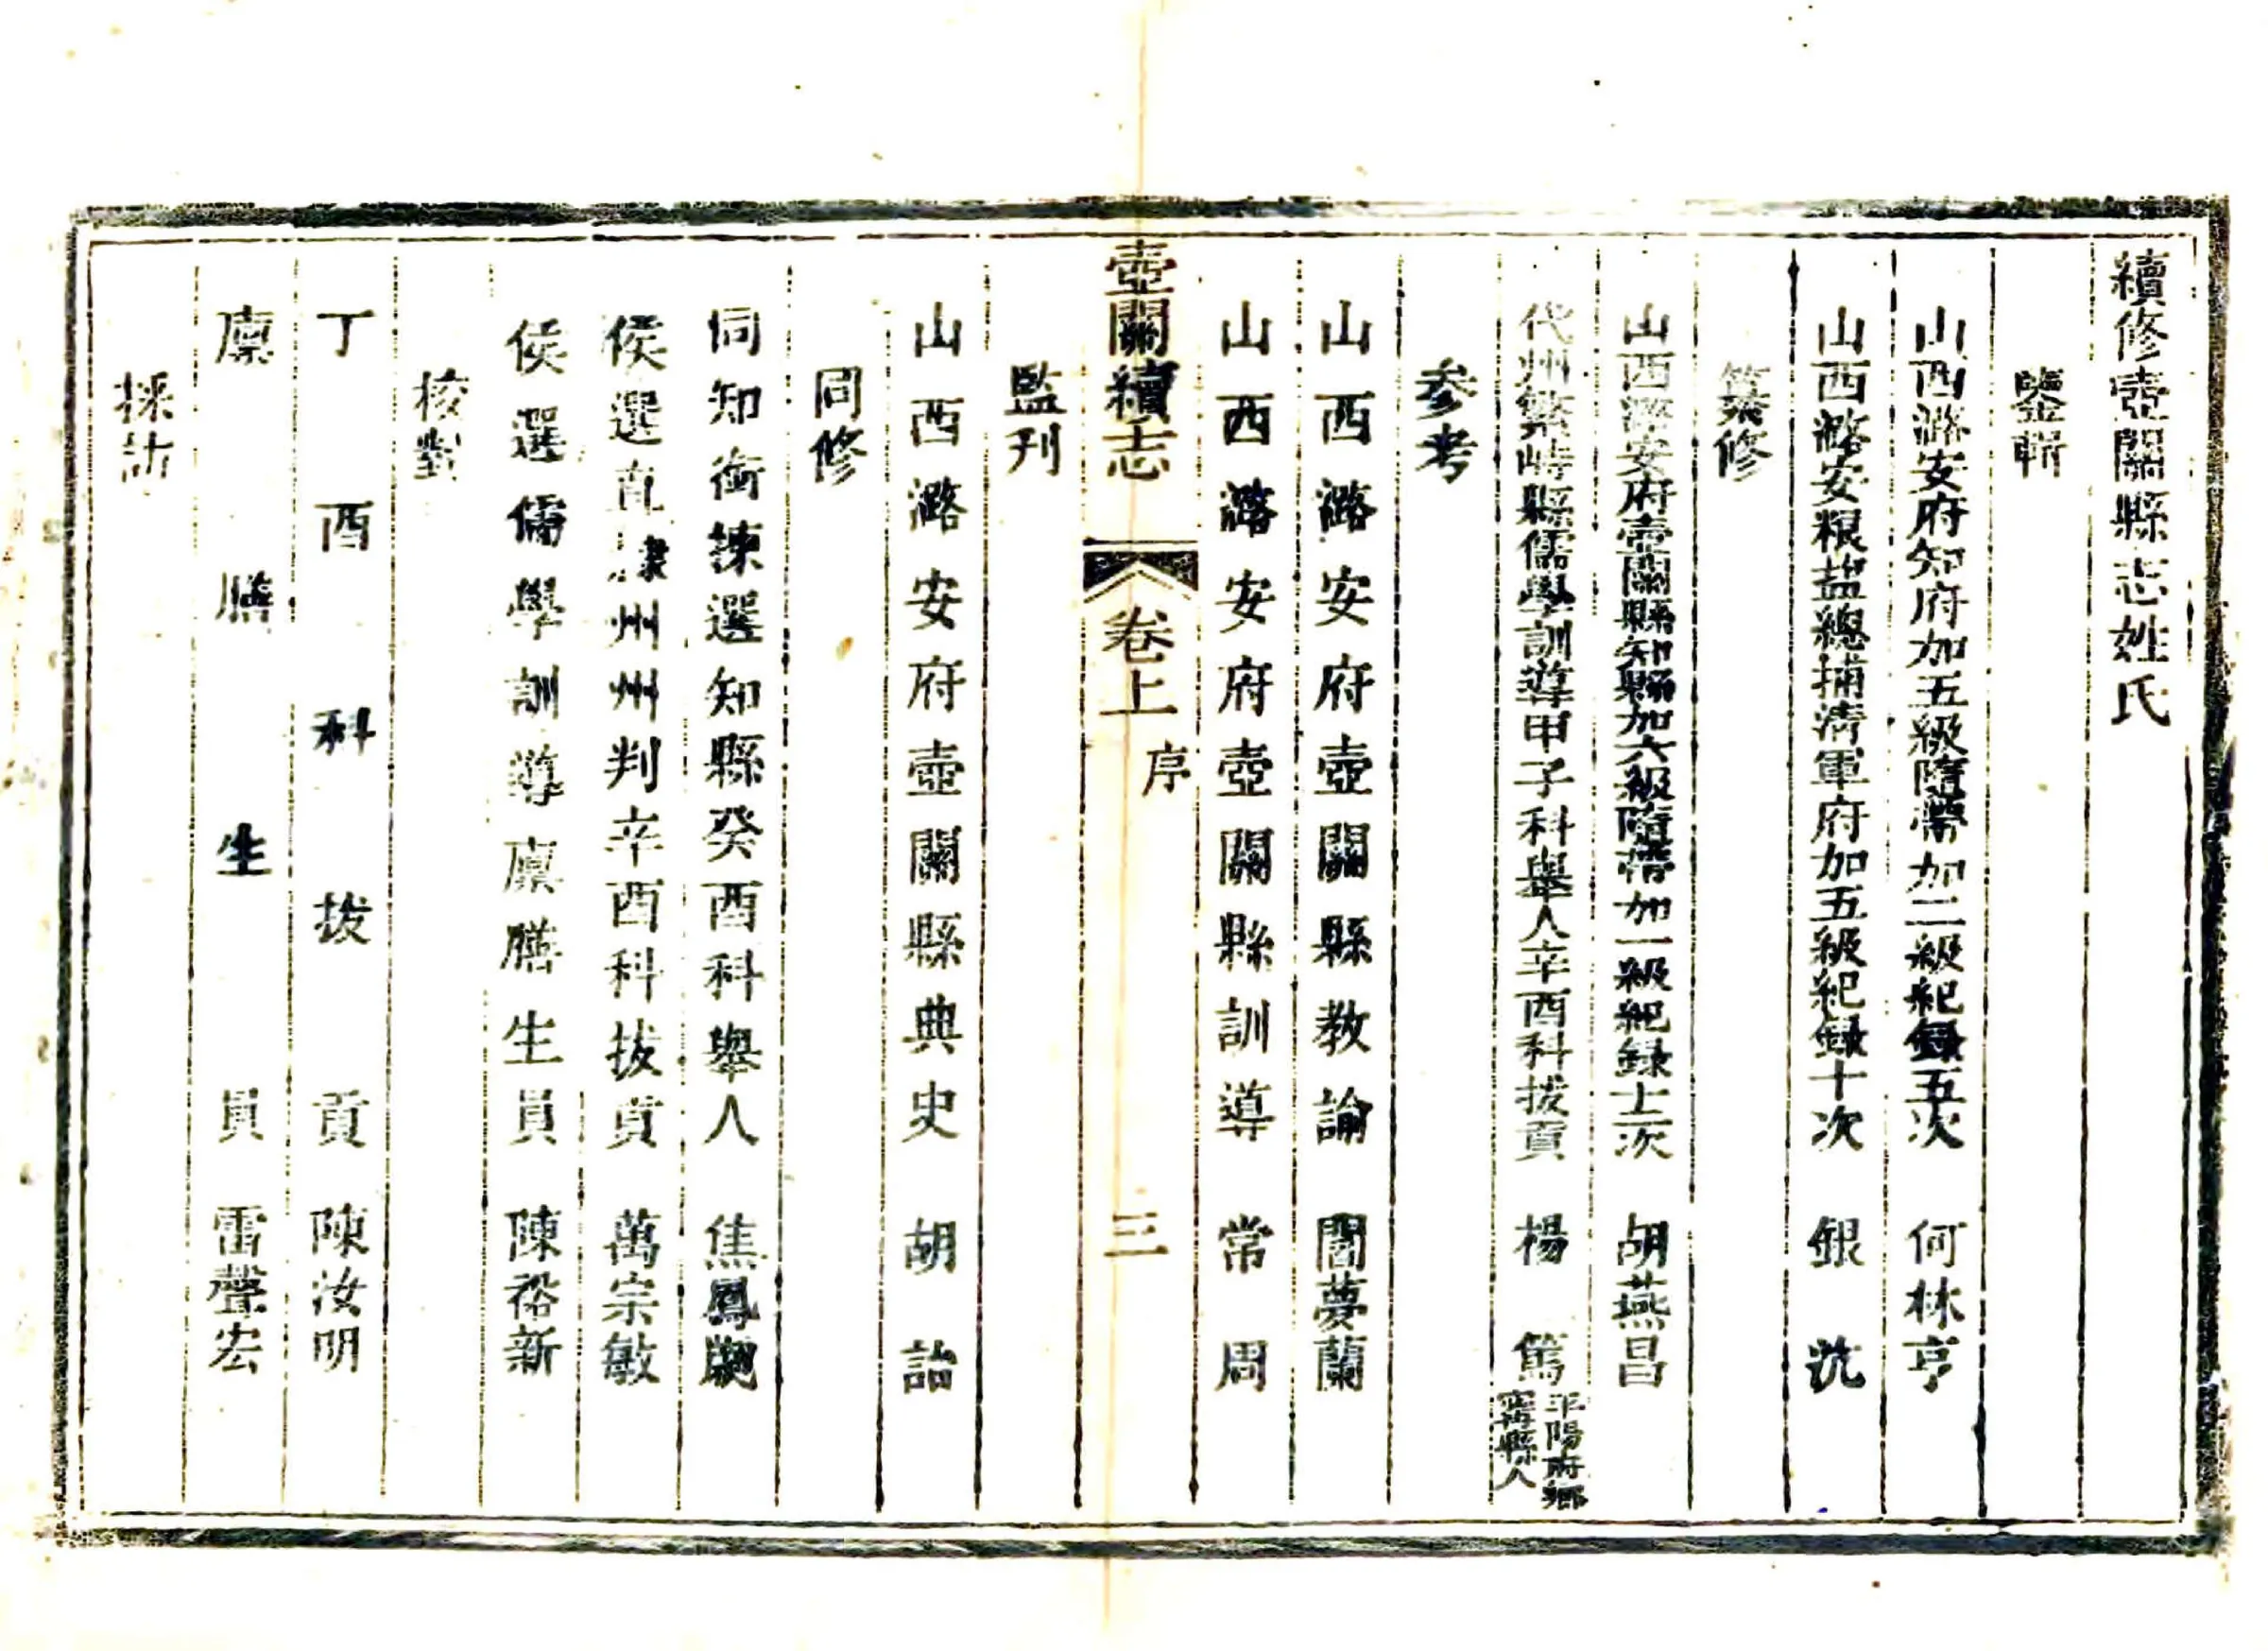 續修壺關縣志姓氏
鑒輯
山西潞安府知府加五級隨帶加二級紀録五次 何林亨
山西潞安粮盐總捕清軍府加五級紀録十次 銀沆
纂修
山西潞安府壺關縣知縣加六級隨帶加一級紀録十二次 胡燕昌
代州繁峙縣儒學訓導甲子科舉人辛酉科拔貢 楊篤 平陽府鄉
寧縣人
参考
山西潞安府壺關縣教諭 閻夢蘭
山西潞安府壺關縣訓導 常周
壺關續志 卷上 序 三
監刊
山西潞安府壺關縣典史 胡詒
同修
同知銜揀選知縣癸酉科舉人 焦鳳
候選直隷州州判辛酉科拔貢 萬宗敏
候選儒學訓導廪膳生員 陳裕新
校對
丁酉科拔貢 陳汝明
廪膳生員 雷聲宏
採訪